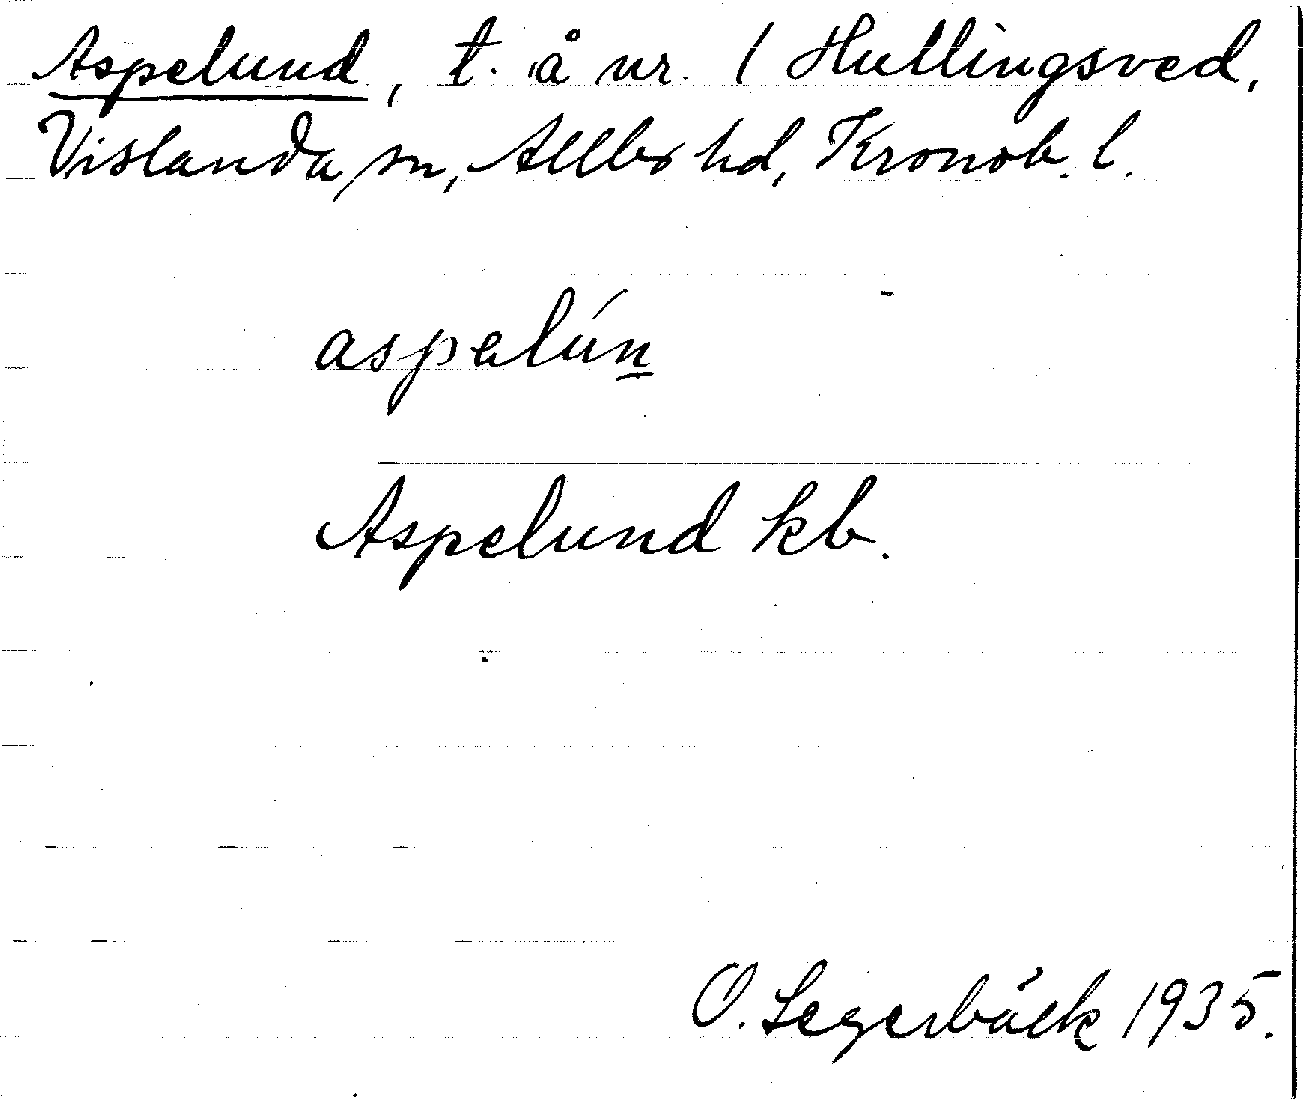 Aspelund, t. å nr. 1 Hullingsved,
Vislanda sn, Allbo hd, Kronob. l.
aspelún
Aspelund kb.
O. Segerbäck 1935.